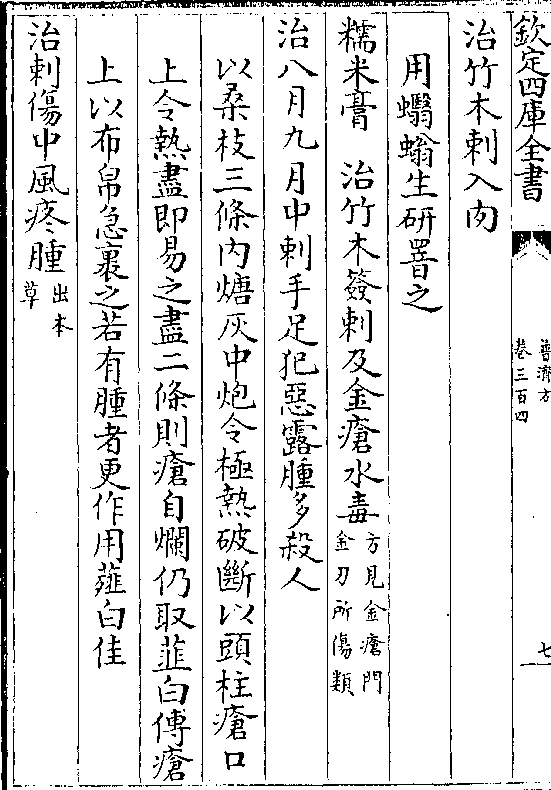 欽定四庫全書
普濟方
卷三百四
七
治竹木刺入肉
用蠮螉生研罯之
糯米膏　治竹木簽刺及金瘡水毒方見金瘡門
金刃所傷類
治八月九月中刺手足犯惡露腫多殺人
以桑枝三條内煻灰中炮令極熱破斷以頭柱瘡口
上令熱盡即易之盡二條則瘡自爛仍取韮白傅瘡
上以布帛急裹之若有腫者更作用薤白佳
治刺傷中風疼腫出本
草